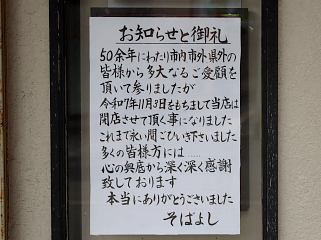 お知らせと御礼
50余年にわたり市内市外県外の
皆様から多大なるご愛顧を
頂いて参りましたが
令和7年11月3日をもちまして当店は
閉店させて頂く事になりました
これまで永い間ごひいき下さいました
多くの皆様方には……
心の奥底から深く深く感謝
致しております
本当にありがとうございました
そばよし